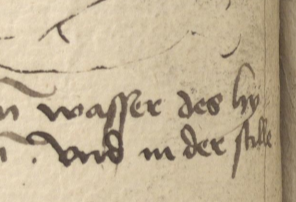 n wasser des hy
n . vnd in der stille